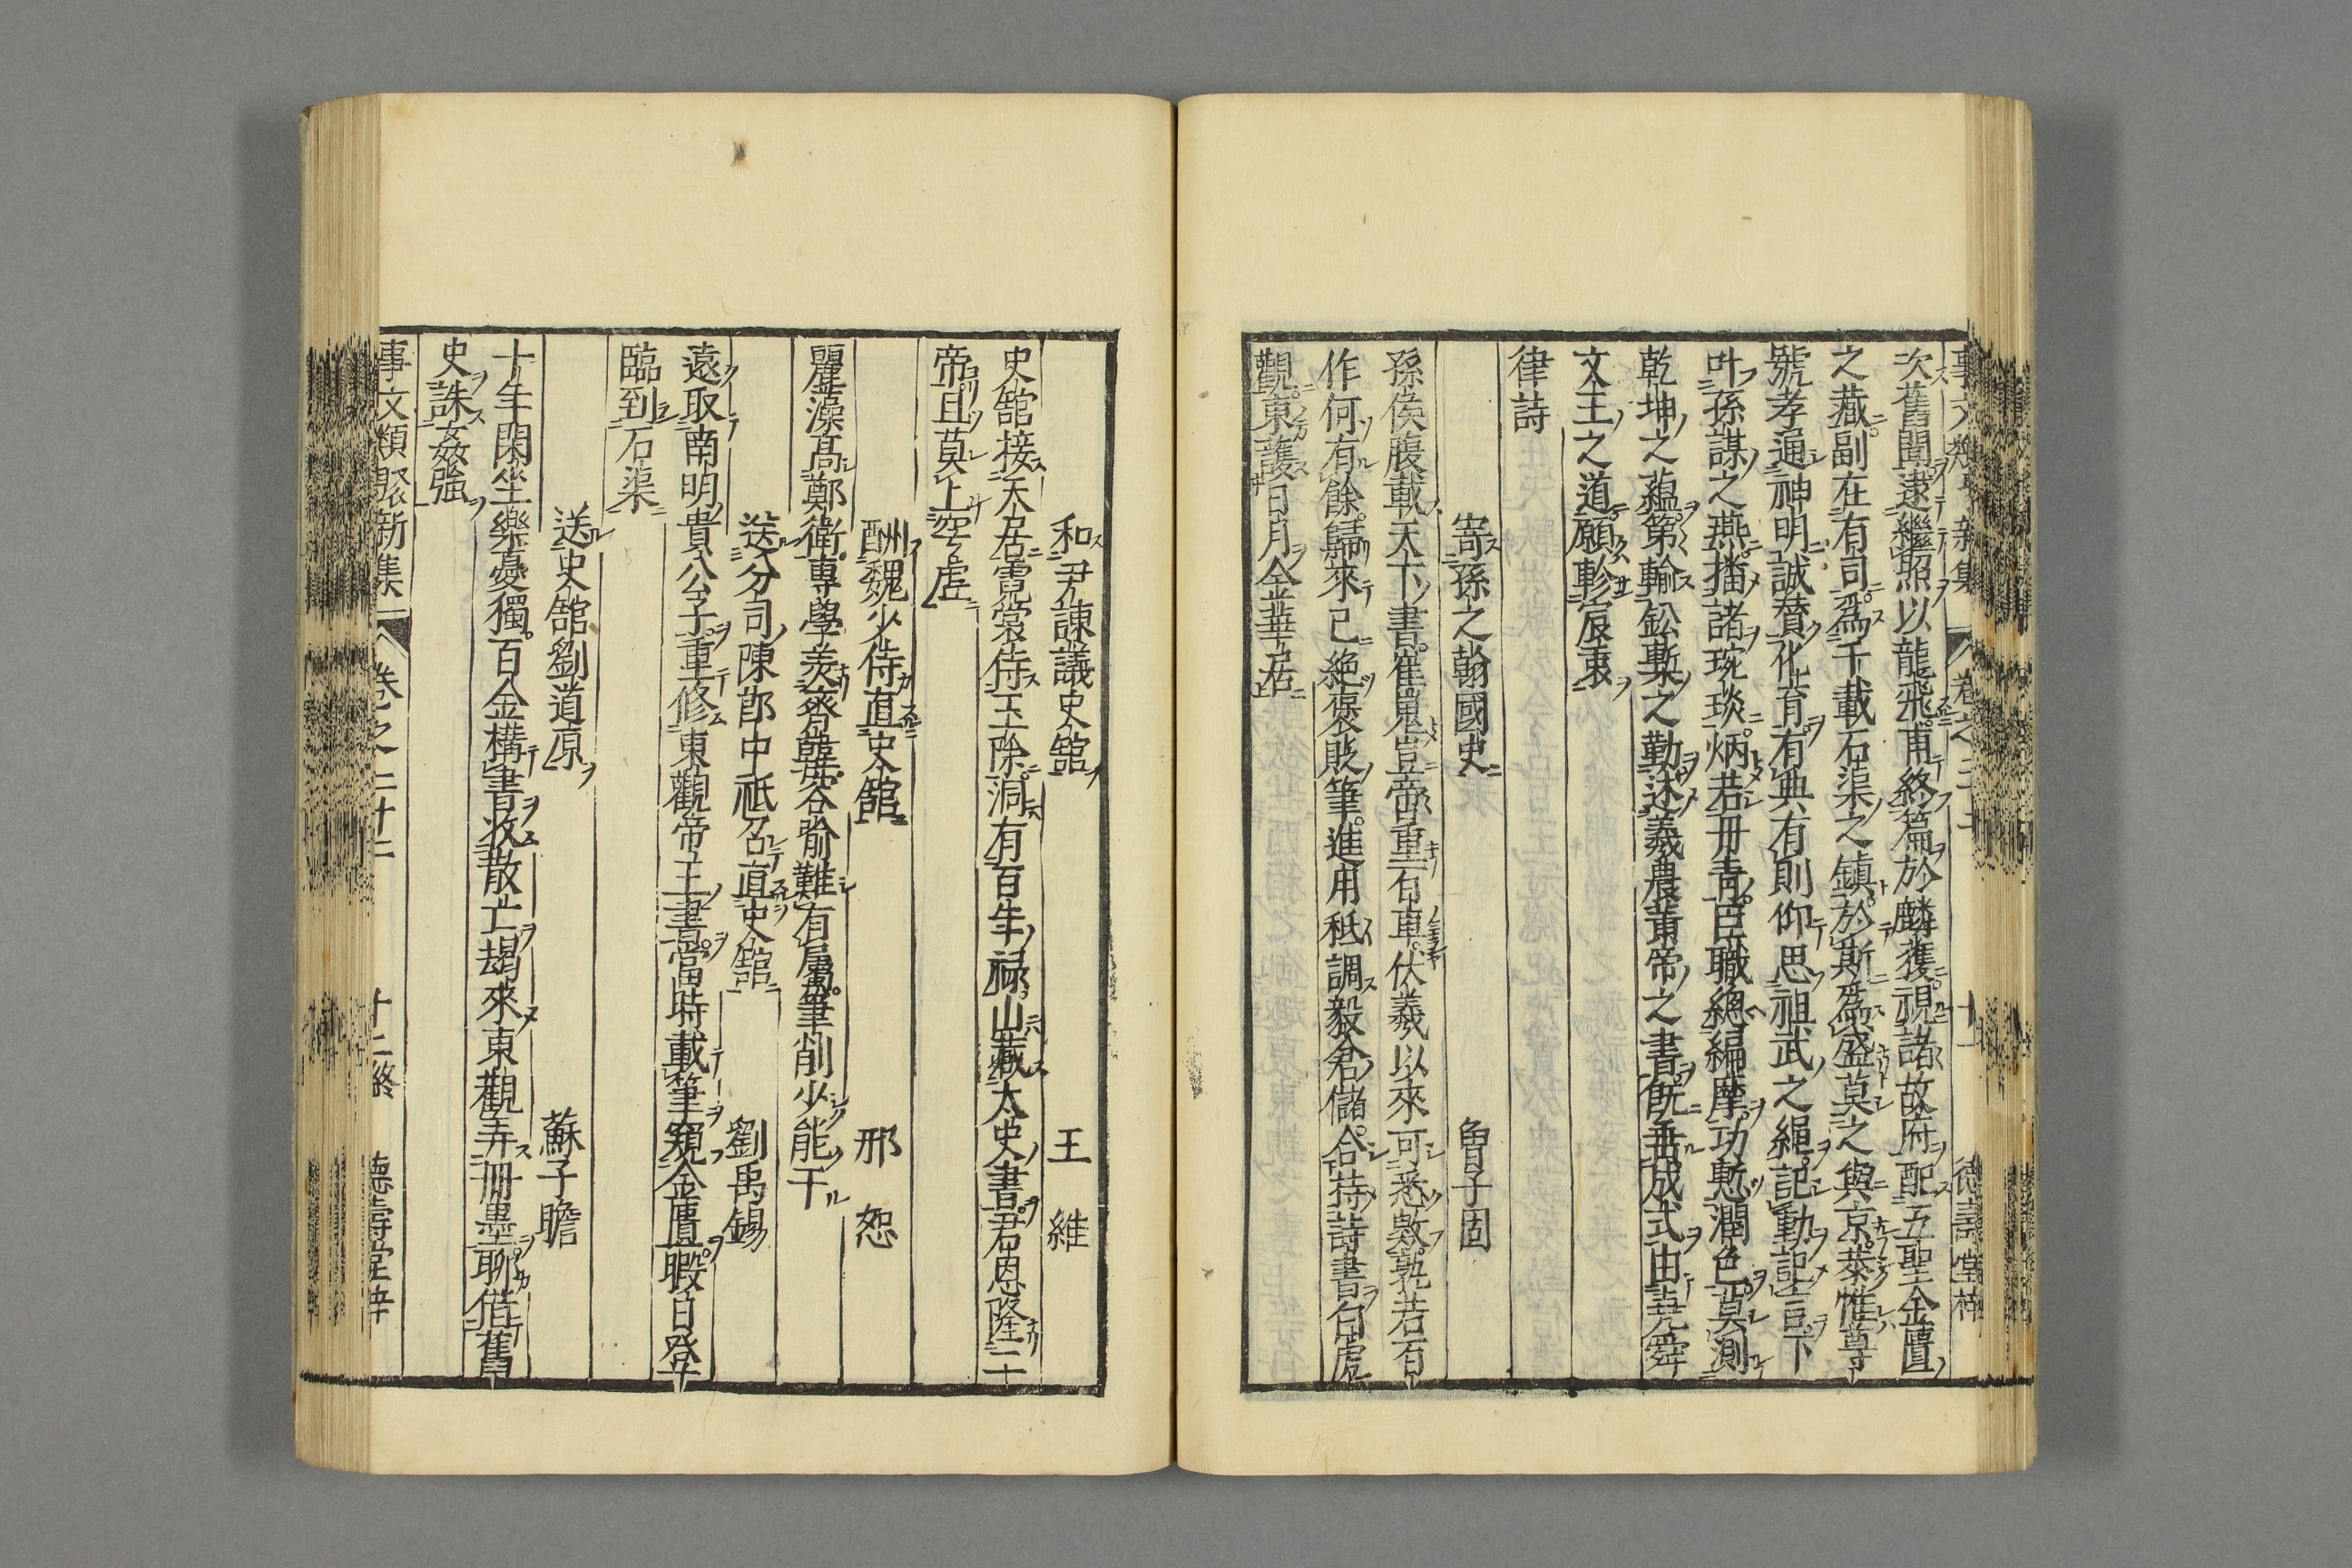 事文類聚新集 卷之二十二 十二 德壽堂梓
次舊聞逮繼照以龍飛甫終篇於麟獲視諸故府配五聖金匱
之藏副在有司爲千載石渠之鎮於斯爲盛莫之與京恭惟尊
號孝通神明誠賛化育有典有則仰思祖武之繩記動記言下
叶孫謀之燕播諸琬琰炳若丹青臣職緫編摩功慙潤色莫測
乾坤之蘊第輸鈆槧之勤述羲農黃帝之書旣垂成式由堯舜
文王之道願軫宸衷
律詩
寄孫之翰國史 魯子固
孫侯腹載天下書崔嵬豈啻重百車伏羲以來可悉數孰若有
作何有餘歸來已絶褒貶筆進用秪調毅倉儲合持詩書白虎
觀東護日月金華居
和尹諫議史舘 王維
史舘接天居霓裳侍玉除洞有百年禄山藏太史書君恩隆二
帝且莫上空虛
酬魏少侍直史舘 邢恕
麗藻髙鄭衛專學羡齊韓英谷喻難有屬筆削少能干
送分司陳郎中祇召直史舘 劉禹錫
遠取南明貴公子重修東觀帝王書當時載筆窺金匱暇日登
臨到石渠
送史舘劉道原 蘇子瞻
十年閑坐樂憂獨百金搆書收散亡朅來東觀弄冊墨聊借舊
史誅姦強
事文類聚新集 卷之二十二 十二終 德壽堂梓